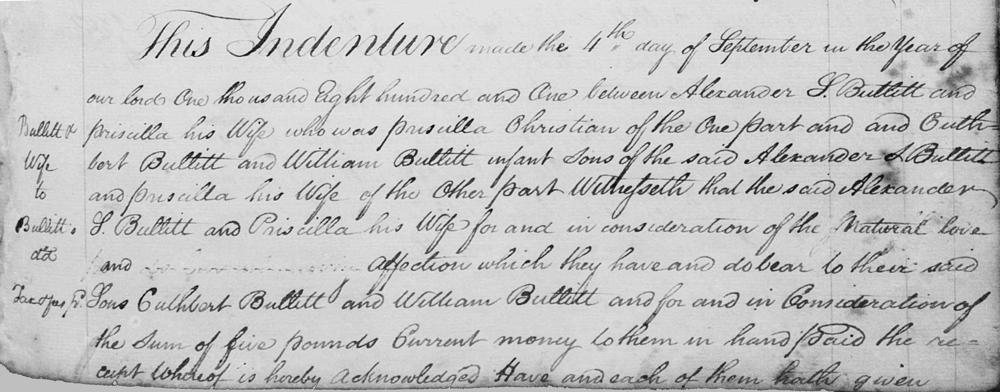 This Indenture made the 4th day of September in the Year of
our lord One thousand Eight hundred and One between Alexander S. Bullitt and
priscilla his Wife who was priscilla Christian of the One part and and Cuth-
bert Bullitt and William Bullitt infant Sons of the said Alexander S. Bullitt
and priscilla his Wife of the Other part Witnesseth that the said Alexander
S. Bullitt and Priscilla his Wife for and in consideration of the Natural love
and affection which they have and do bear to their said
Sons Cuthbert Bullitt and William Bullitt and for and in Consideration of
the Sum of five pounds Current money to them in hand paid the re-
ceipt whereof is hereby acknowledged Have and each of them hath given
Bullitt &
Wife
to
Bullitt s